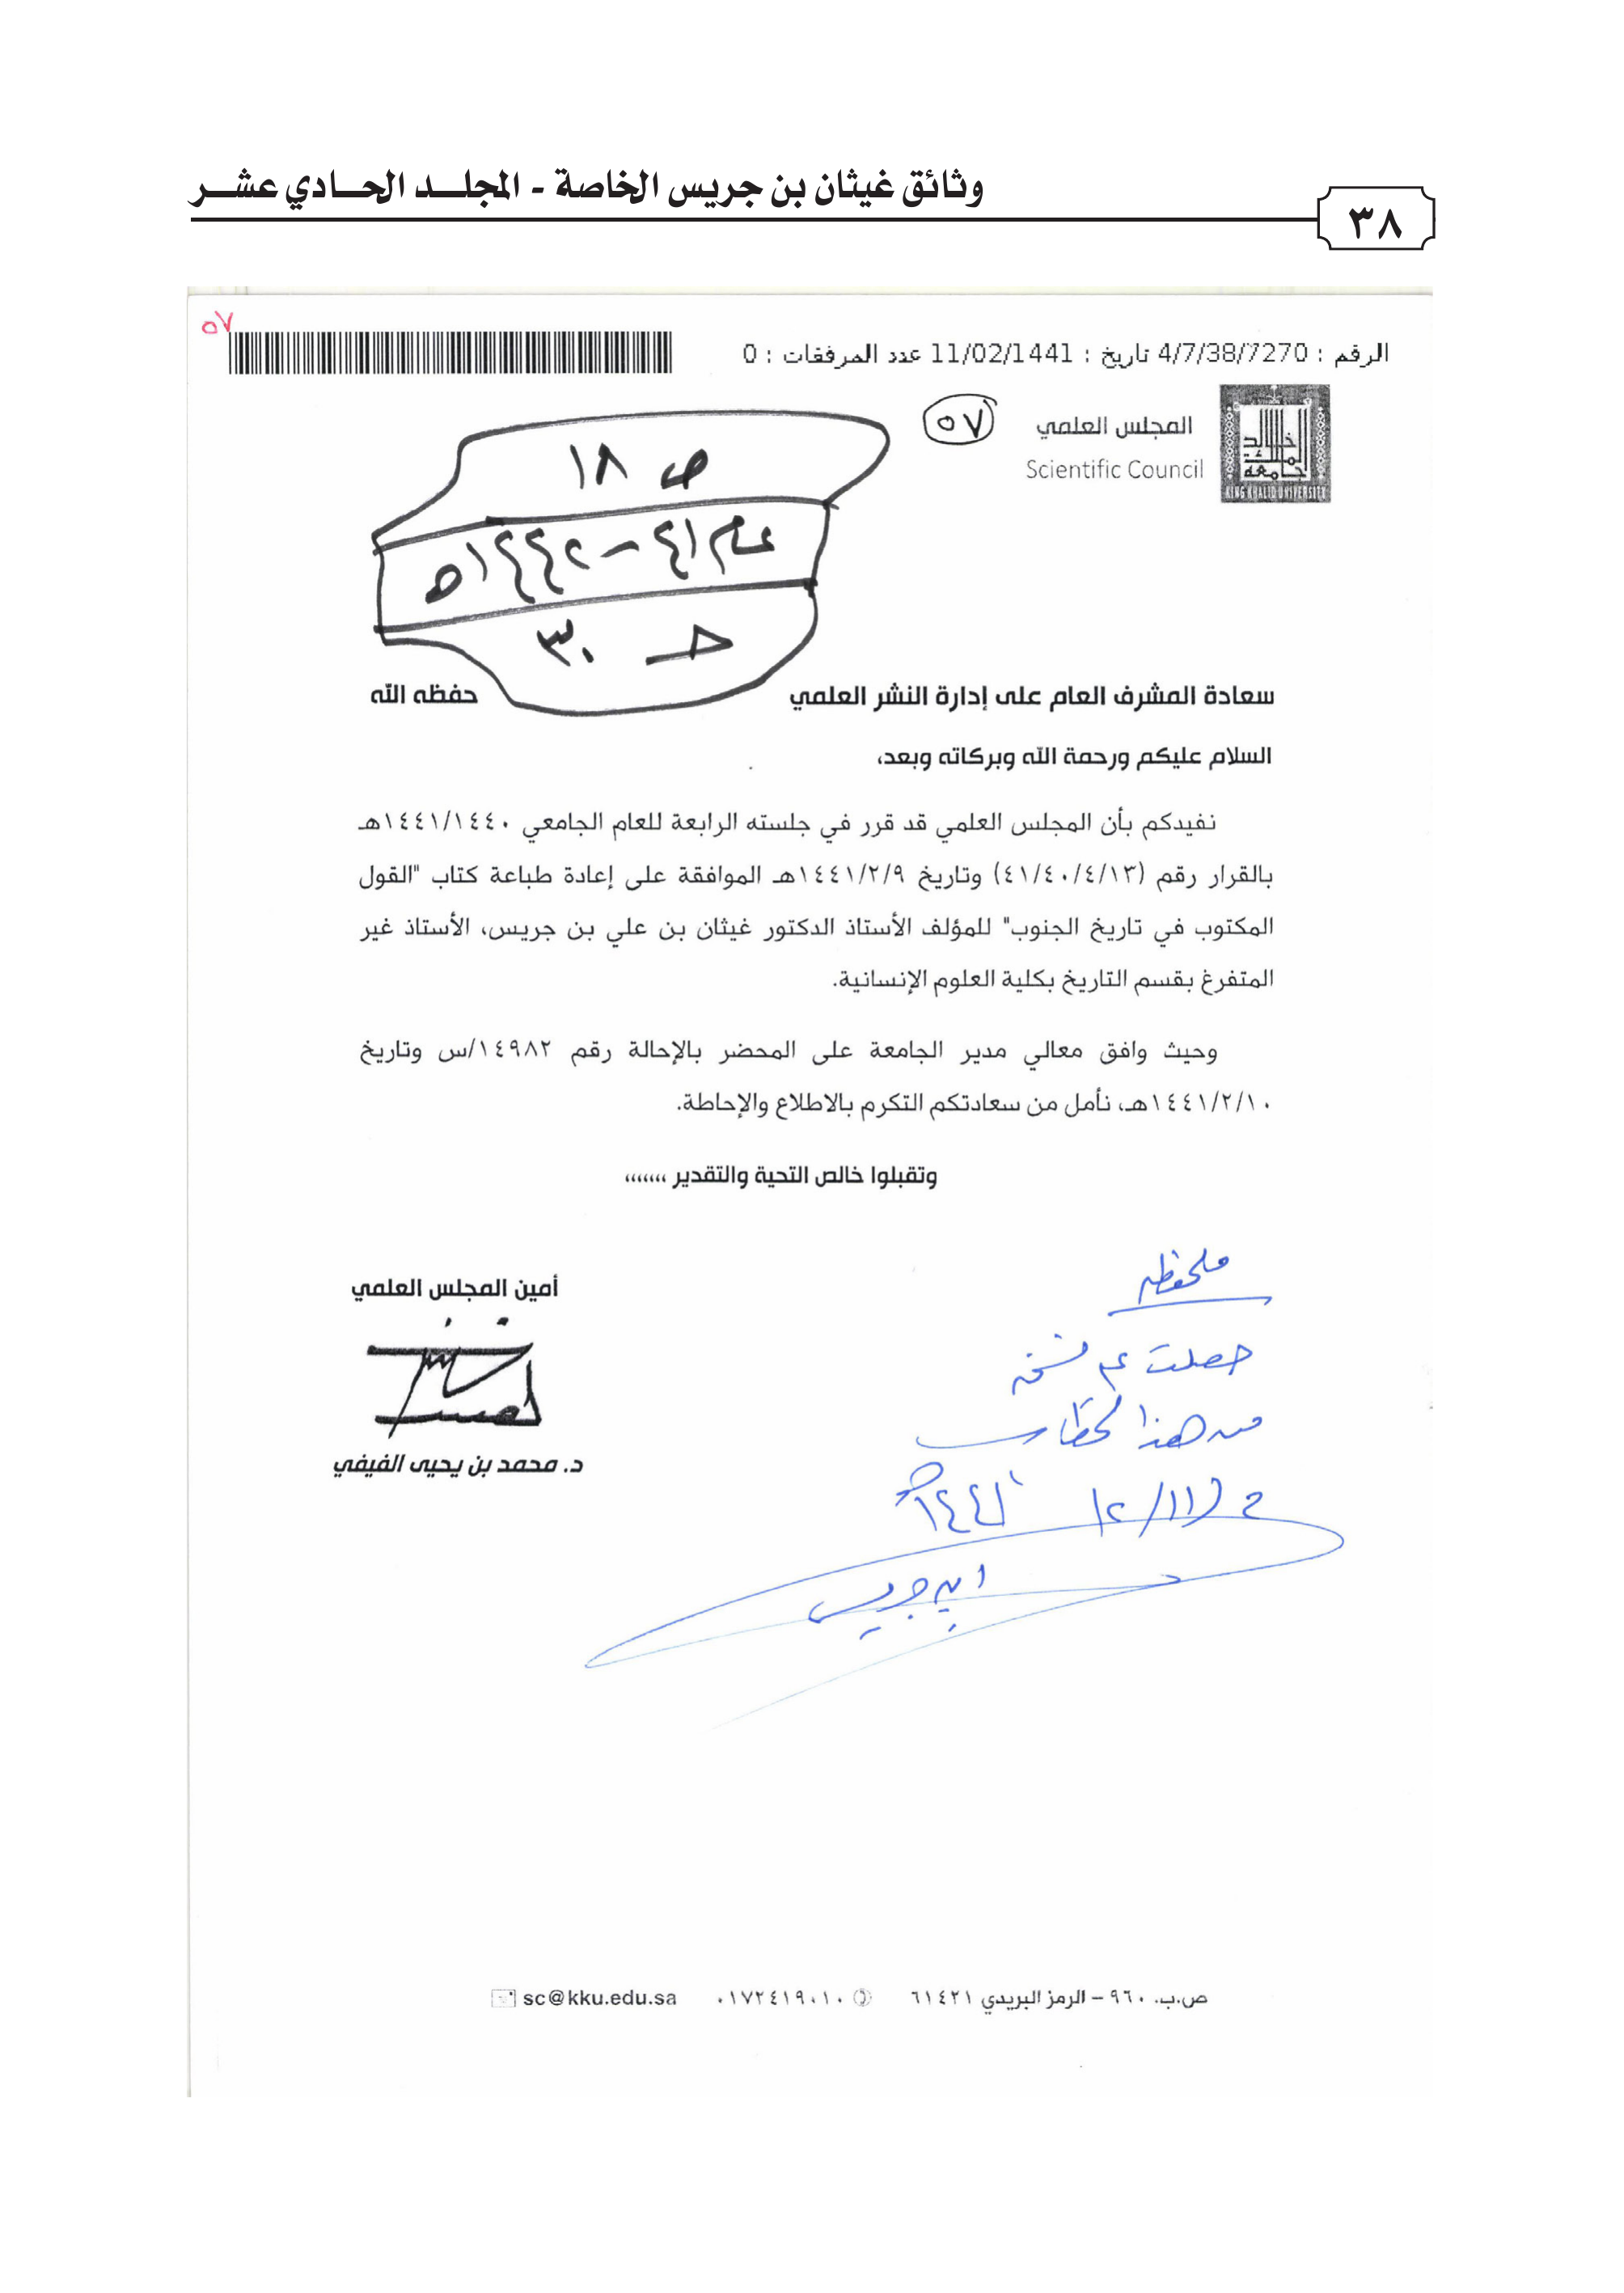 وثائق غيثان بن جريس الخاصة - المجلد الحادي عشر
٣٨
٥٧
الرقم : 4/7/38/7270 تاريخ : 11/02/1441 عدد المرفقات : 0
المجلس العلمي
Scientific Council
جامعة الملك خالد
KING KHALID UNIVERSITY
٥٧
ص ١٨
عام ٤١ - ١٤٤٢هـ
حـ ٣٠
سعادة المشرف العام على إدارة النشر العلمي حفظه الله
السلام عليكم ورحمة الله وبركاته وبعد،
نفيدكم بأن المجلس العلمي قد قرر في جلسته الرابعة للعام الجامعي ١٤٤١/١٤٤٠هـ
بالقرار رقم (٤١/٤٠/٤/١٣) وتاريخ ١٤٤١/٢/٩هـ الموافقة على إعادة طباعة كتاب "القول
المكتوب في تاريخ الجنوب" للمؤلف الأستاذ الدكتور غيثان بن علي بن جريس، الأستاذ غير
المتفرغ بقسم التاريخ بكلية العلوم الإنسانية.
وحيث وافق معالي مدير الجامعة على المحضر بالإحالة رقم ١٤٩٨٢/س وتاريخ
١٤٤١/٢/١٠هـ، نأمل من سعادتكم التكرم بالاطلاع والإحاطة.
وتقبلوا خالص التحية والتقدير ،،،،،،،
أمين المجلس العلمي
د. محمد بن يحيى الفيفي
ملحوظة
حصلت على نسخة
من هذا الخطاب
في ١٤٤١/٢/١١هـ
ابن جريس
ص.ب. ٩٦٠ – الرمز البريدي ٦١٤٢١ ٠١٧٢٤١٩٠١٠ sc@kku.edu.sa